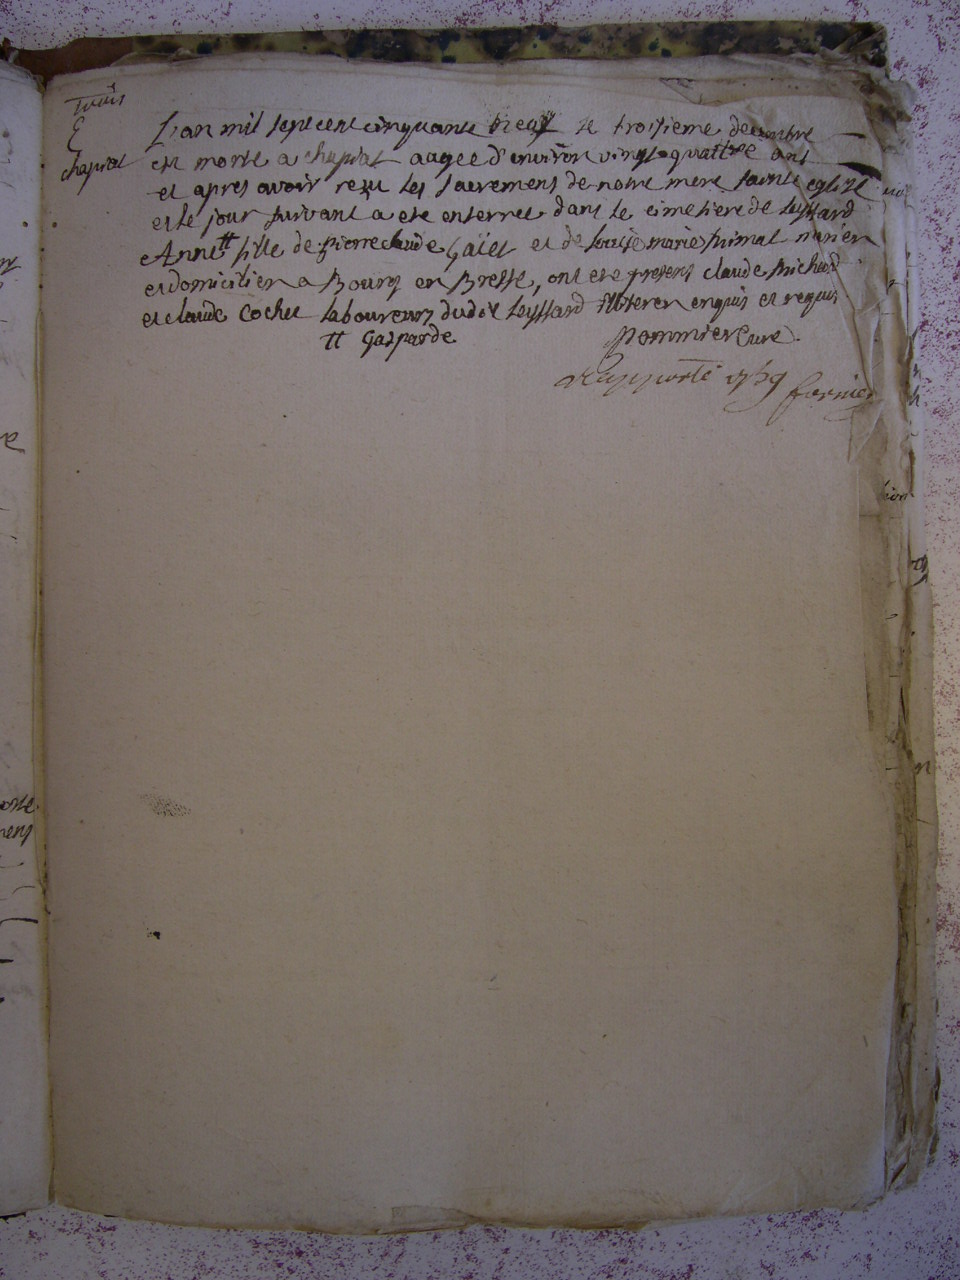 E
chapiat
L'an mil sept cent cinquante neuf le troisieme decembre
est morte a chapiat aagee d'environ vingt quattre ans
et apres avoir reçu les sacremens de notre mere sainte eglise
et le jour suivant a ete enterree dans le cimetiere de Leyssard
Anne fille de pierre claude et de Louise marie mariés
et domiciliés a Bourg en Bresse, ont ete presens claude Michard
et claude Cochet laboureurs dudit Leyssard illiteres enquis et requis
tt Gasparde Pommier Cure